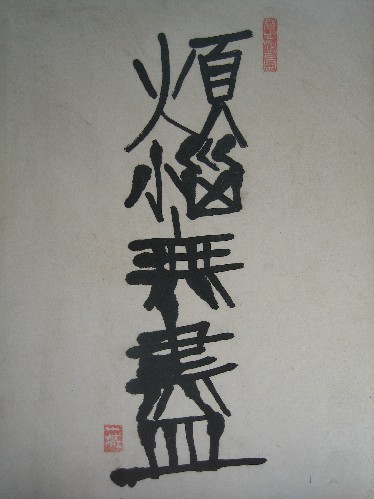 煩惱無盡